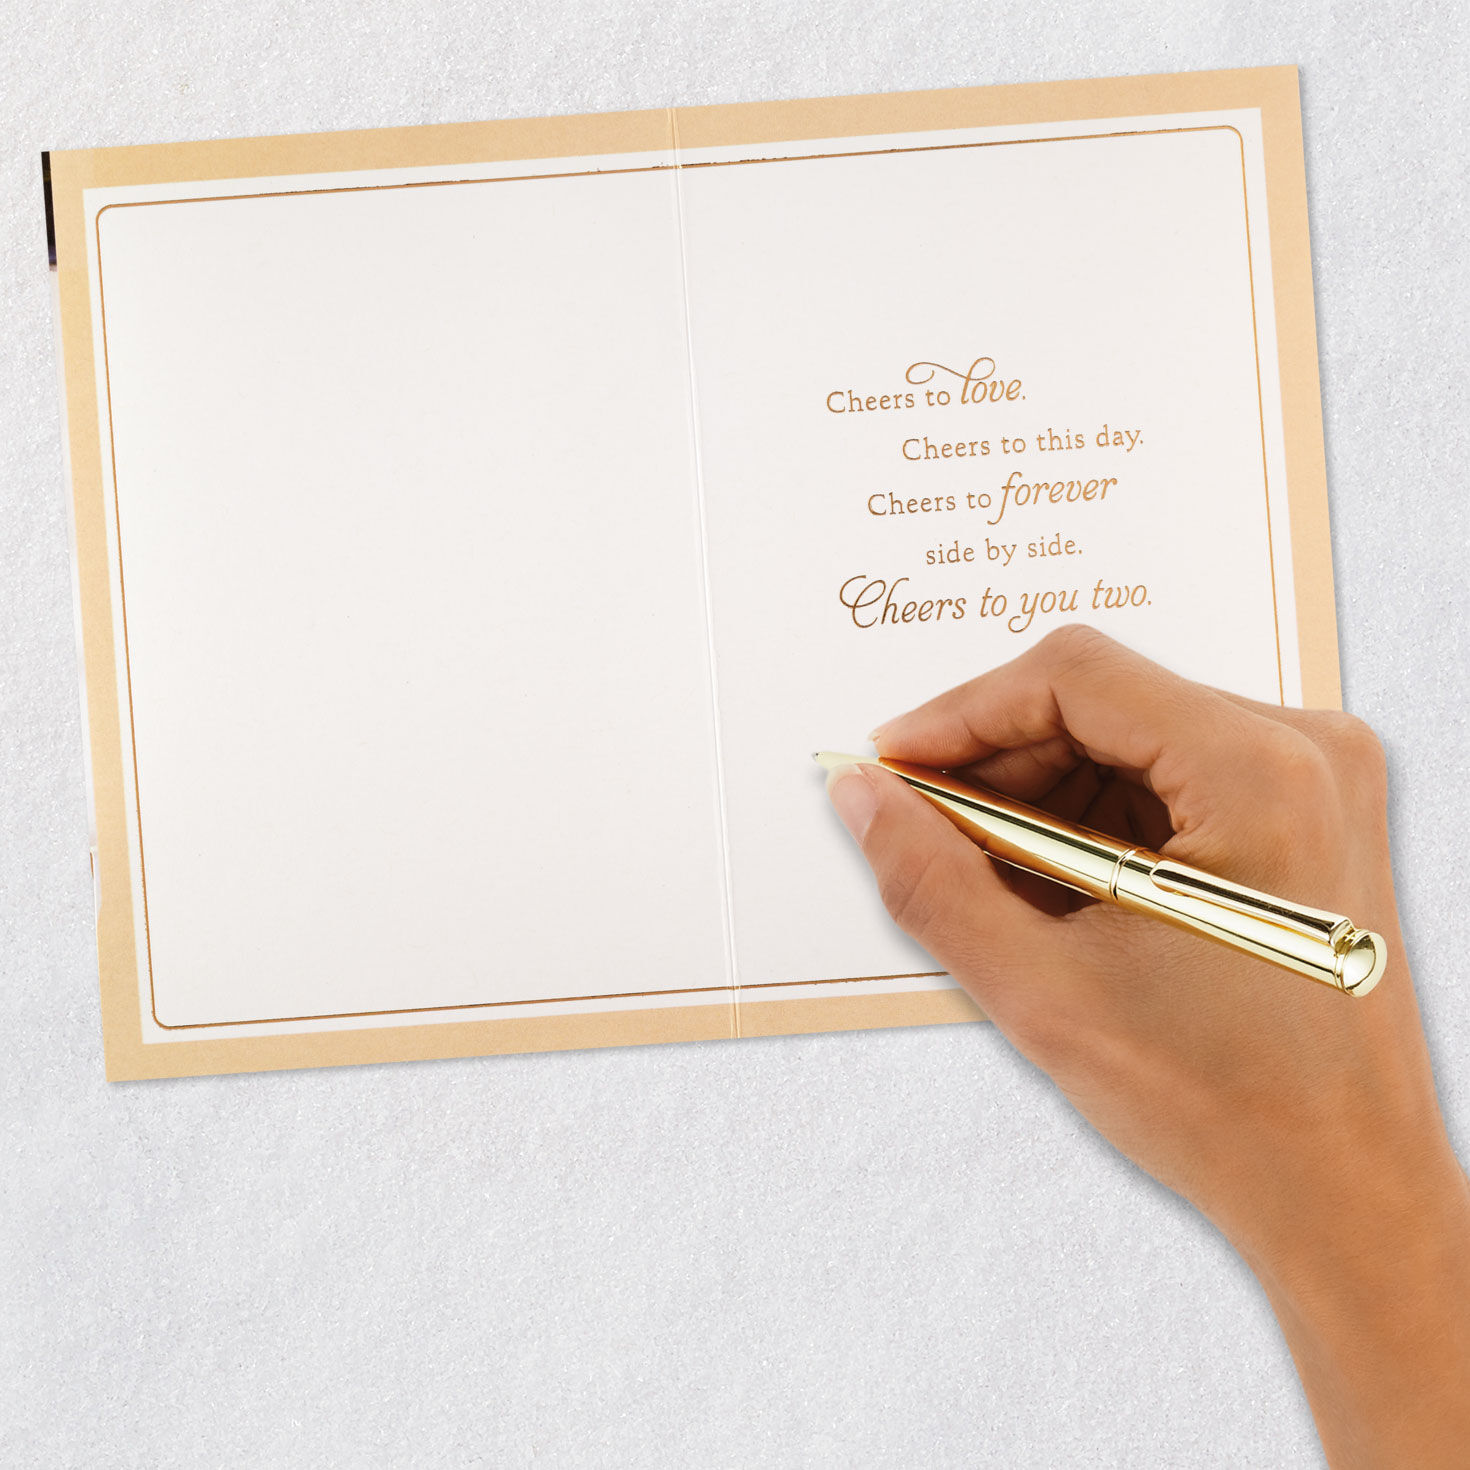 Cheers to love.
Cheers to this day.
Cheers to forever
side by side.
Cheers to you two.